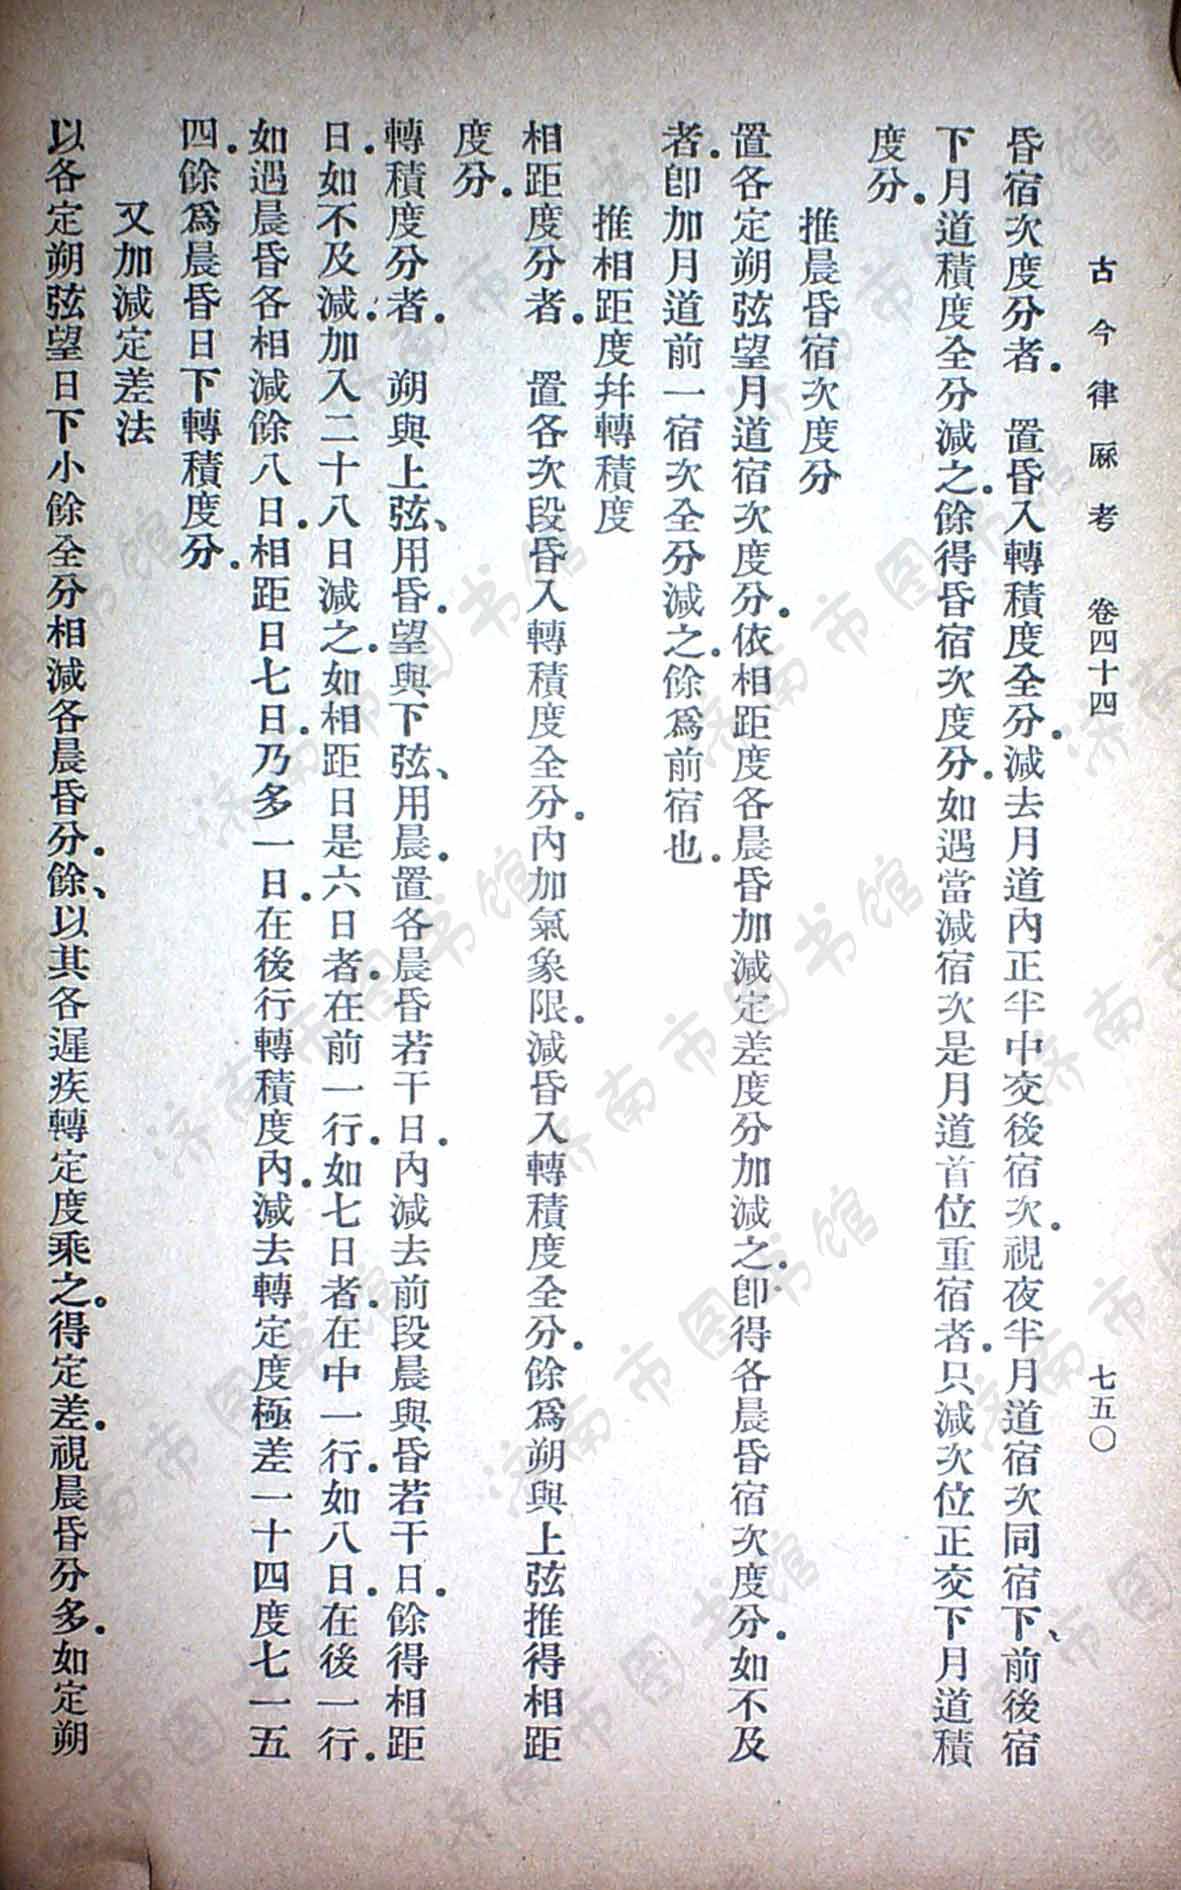 古今律厤考　卷四十四　七五〇
昏宿次度分者。　置昏入轉積度全分。減去月道內正半中交後宿次。視夜半月道宿次同宿下、前後宿
下月道積度全分減之。餘得昏宿次度分。如遇當減宿次是月道首位重宿者。只減次位正交下月道積
度分。
推晨昏宿次度分
置各定朔弦望月道宿次度分。依相距度各晨昏加減定差度分加減之。卽得各晨昏宿次度分。如不及
者。卽加月道前一宿次全分減之。餘爲前宿也。
推相距度幷轉積度
相距度分者。　置各次段昏入轉積度全分。內加氣象限。減昏入轉積度全分。餘爲朔與上弦推得相距
度分。
轉積度分者。　朔與上弦、用昏。望與下弦、用晨。置各晨昏若干日。內減去前段晨與昏若干日。餘得相距
日。如不及減。加入二十八日減之。如相距日是六日者。在前一行。如七日者。在中一行。如八日。在後一行。
如遇晨昏各相減餘八日。相距日七日。乃多一日。在後行轉積度內。減去轉定度極差一十四度七一五
四。餘爲晨昏日下轉積度分。
又加減定差法
以各定朔弦望日下小餘全分相減各晨昏分。餘、以其各遲疾轉定度乘之。得定差。視晨昏分多。如定朔